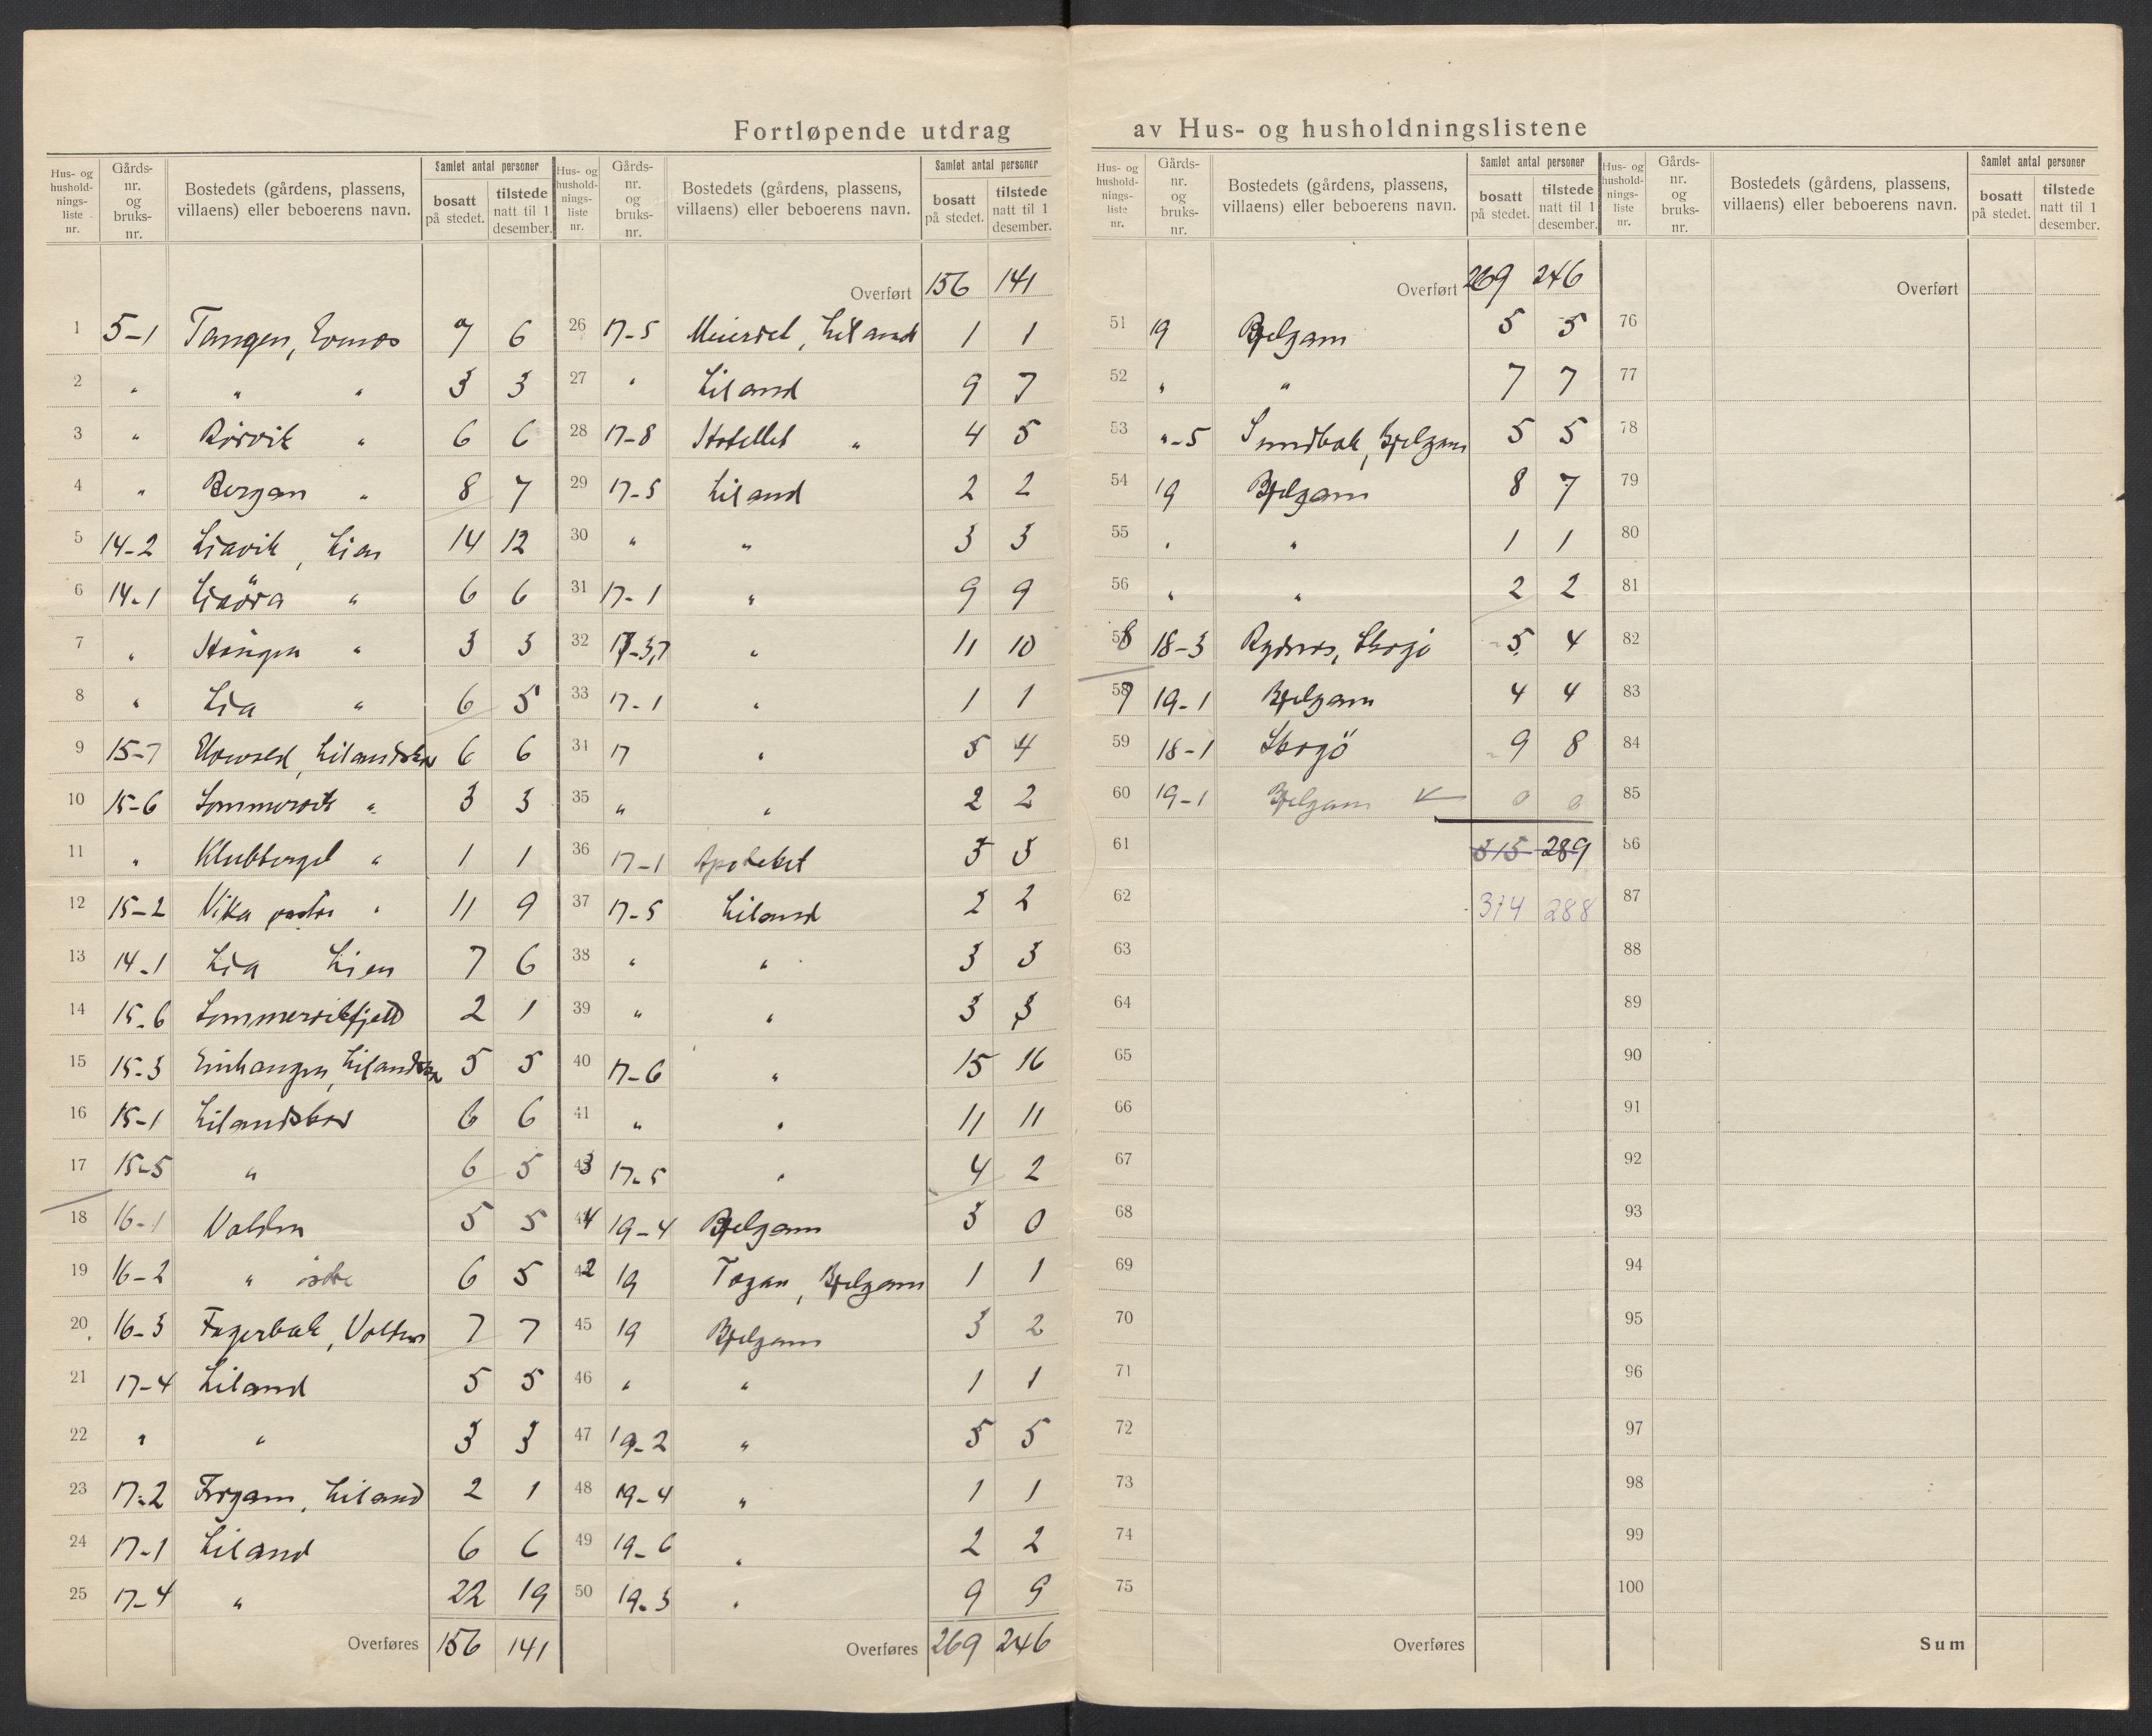 Fortløpende utdrag av Hus- og husholdningslistene
Hus- og husholdnings-liste nr. | Gårds-nr. og bruks-nr. | Bostedets (gårdens, plassens, villaens) eller beboerens navn. | Samlet antal personer bosatt på stedet. | tilstede natt til 1 desember.
1 5-1 Tangen, 7 6
2 " " " 3 3
3 " Rörvik " 6 6
4 " Bergan " 8 7
5 14-2 Liavik, Lien 14 12
6 14-1 Liaöra " 6 6
7 " " 3 3
8 " Lia " 6 5
9 15-7 6 6
10 15-6 Sommervik " 3 3
11 " Klubberget " 1 1
12 15-2 Vika " 11 9
13 14-1 Lia Lien 7 6
14 15-6 Sommervikfjell 2 1
15 15-3 5 5
16 15-1 Lilandskar 6 6
17 15-5 " 6 5
18 16-1 Valden 5 5
19 16-2 " östre 6 5
20 16-3 Fagerbak, 7 7
21 17-4 Liland 5 5
22 " " 3 3
23 17-2 Liland 2 1
24 17-1 Liland 6 6
25 17-4 " 22 19
Overføres 156 141
Hus- og husholdnings-liste nr. | Gårds-nr. og bruks-nr. | Bostedets (gårdens, plassens, villaens) eller beboerens navn. | Samlet antal personer bosatt på stedet. | tilstede natt til 1 desember.
Overført 156 141
26 17-5 Meieriet, Liland 1 1
27 " Liland 9 7
28 17-8 Hotellet " 4 5
29 17-5 Liland 2 2
30 " " 3 3
31 17-1 " 9 9
32 17-3,7 " 11 10
33 17-1 " 1 1
34 17 " 5 4
35 " " 2 2
36 17-1 Apoteket 5 5
37 17-5 Liland 2 2
38 " " 3 3
39 " " 3 3
40 17-6 " 15 16
41 " " 11 11
43 17-5 " 4 2
44 19-4 Bjelgam 3 0
42 19 Bjelgam 1 1
45 19 Bjelgam 3 2
46 " " 1 1
47 19-2 " 5 5
48 19-4 " 1 1
49 19-6 " 2 2
50 19-3 " 9 9
Overføres 269 246
Hus- og husholdnings-liste nr. | Gårds-nr. og bruks-nr. | Bostedets (gårdens, plassens, villaens) eller beboerens navn. | Samlet antal personer bosatt på stedet. | tilstede natt til 1 desember.
Overført 269 246
51 19 Bjelgam 5 5
52 " " 7 7
53 "-5 Sundbak, Bjelgam 5 5
54 19 Bjelgam 8 7
55 " " 1 1
56 " " 2 2
58 18-3 5 4
57 19-1 Bjelgam 4 4
59 18-1 Skogö 9 8
60 19-1 Bjelgam 0 0
61 315 289
62 314 288
63
64
65
66
67
68
69
70
71
72
73
74
75
Overføres
Hus- og husholdnings-liste nr. | Gårds-nr. og bruks-nr. | Bostedets (gårdens, plassens, villaens) eller beboerens navn. | Samlet antal personer bosatt på stedet. | tilstede natt til 1 desember.
Overført
76
77
78
79
80
81
82
83
84
85
86
87
88
89
90
91
92
93
94
95
96
97
98
99
100
Sum